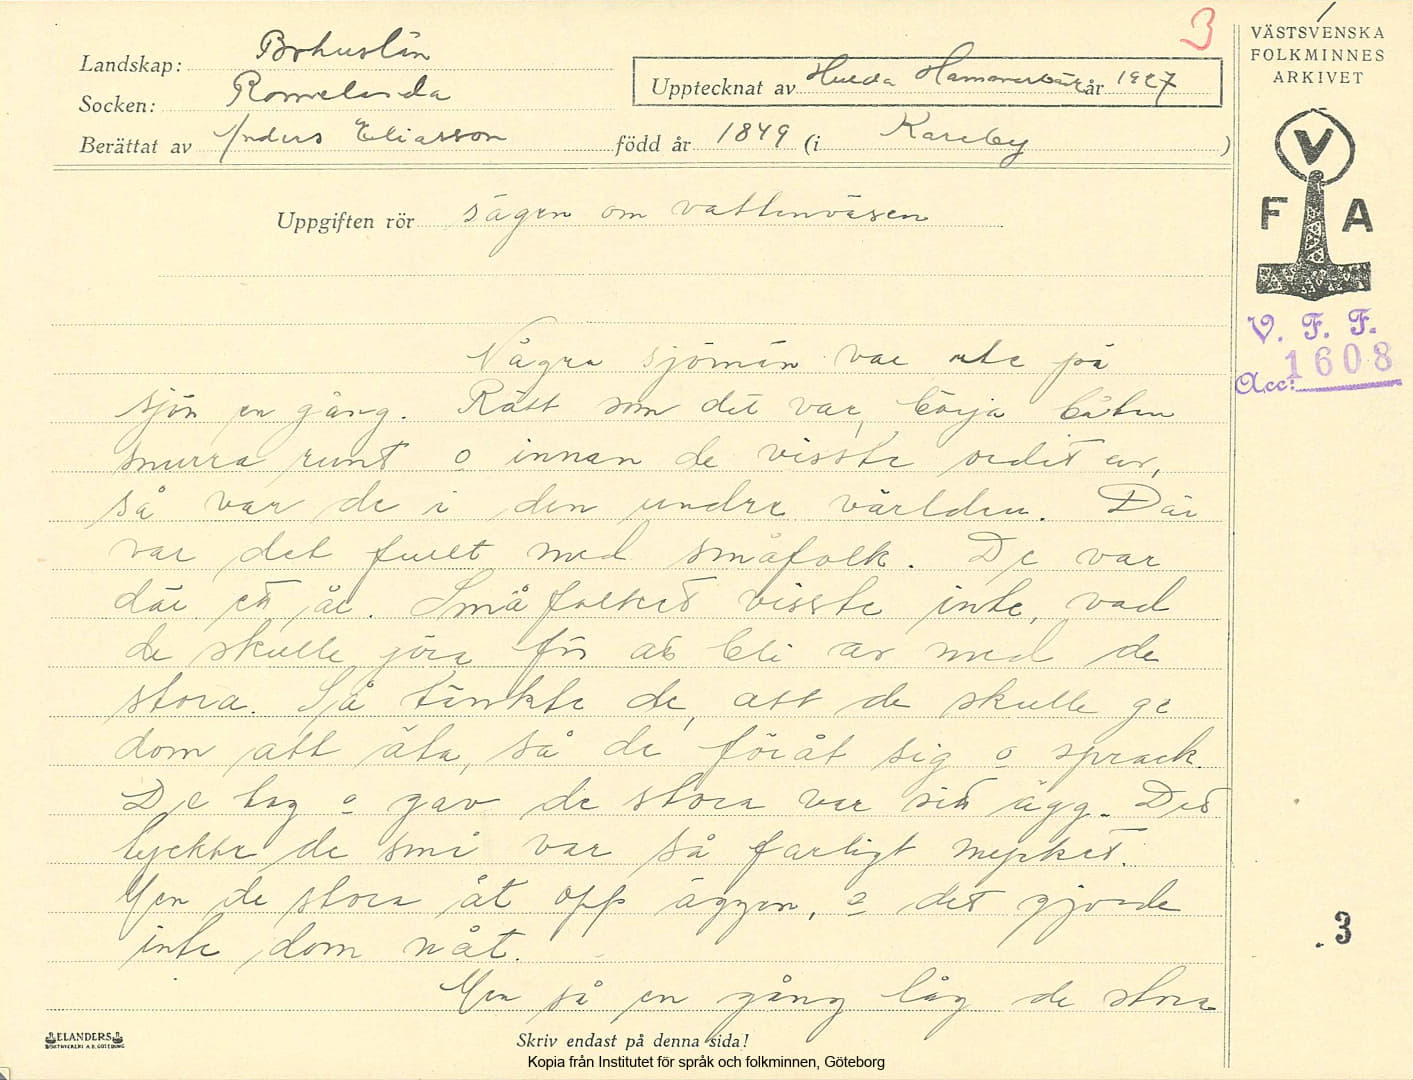 3
Landskap: Bohuslän
Socken: Romelanda
Berättat av Anders Eliasson född år 1849 (i Kareby )
Upptecknat av Hulda Hammarbäck år 1927
VÄSTSVENSKA
FOLKMINNES
ARKIVET
V
F A
V. F. F.
Acc: 1608
Uppgiften rör sägen om vattenväsen
Några sjömän var ute på
sjön en gång. Rätt som det var, börja båten
snurra runt o innan de visste ordet av,
så var de i den undre världen. Där
var det fullt med småfolk. De var
där ett år. Småfolket visste inte, vad
de skulle jöra för att bli av med de
stora. Så tänkte de, att de skulle ge
dom att äta, så de föråt sig o sprack.
De tog o gav de stora var sitt ägg. Det
tyckte de små var så farligt mycket.
Men de stora åt opp äggen, o det gjorde
inte dom nåt.
Men så en gång låg de stora
. 3
ELANDERS
BOKTRYCKERI A.B. GÖTEBORG
Skriv endast på denna sida!
Kopia från Institutet för språk och folkminnen, Göteborg